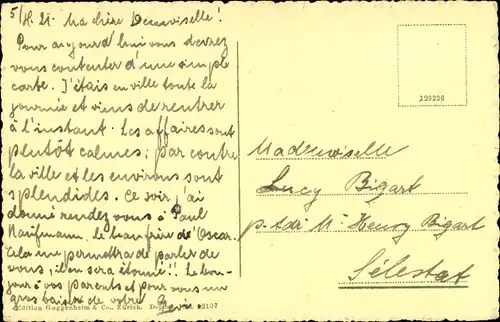 5/II. 21. Ma chère Demoiselle!
Pour aujourd'hui vous devrez
vous contenter d'une simple
carte. J'étais en ville toute la
journée et viens de rentrer
à l'instant. Les affaires sont
plutôt calmes; par contre
la ville et les environs sont
splendides. Ce soir, j'ai
donné rendez vous à Paul
le beau frère de Oscar.
Cela me permettra de parler de
vous, il en sera étonné!! Le bon-
jour à vos parents et pour vous un
gros baiser de votre
Edition Guggenheim & Co., Zürich. 12107
129236
Mademoiselle
Lucy Bigart
p. adr. Mr Henry Bigart
Sélestat